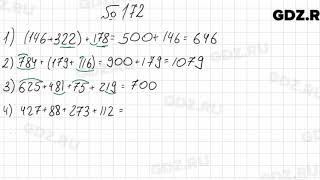 № 172
GDZ.RU
1) (146+322)+178=500+146=646
2) 784+(179+116)=900+179=1079
3) 625+481+75+219=700
4) 427+88+273+112=